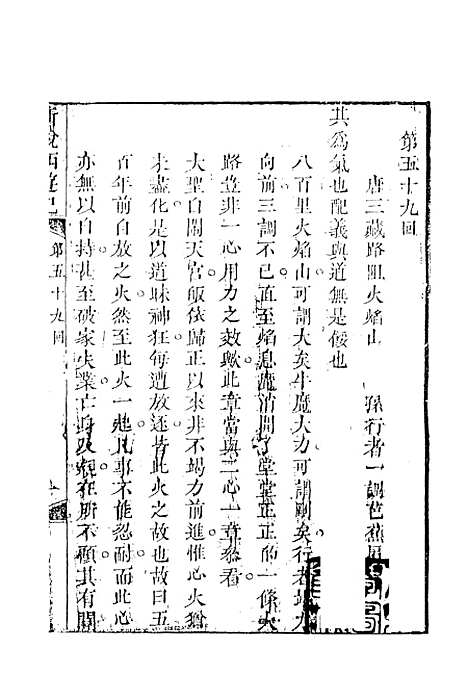 第五十九回
唐三藏路阻火焰山　孫行者一調芭蕉扇
其為氣也配義與道無是餒也
八百里火焰山可謂大矣牛魔大力可謂剛矣行者竭力
向前三調不已直至焰息烟消開了堂堂正正的一條大
路豈非一心用力之效歟此章當與二心一章參看
大聖自鬧天宮皈依歸正以來非不竭力前進惟心火猶
未盡化是以道昧神狂每遭放逐皆此火之故也曰五
百年前自放之火然至此火一起凡事不能忍耐而此心
亦無以自持甚至破家失業亡身及親在所不顧其有關
新說西遊記
第五十九回